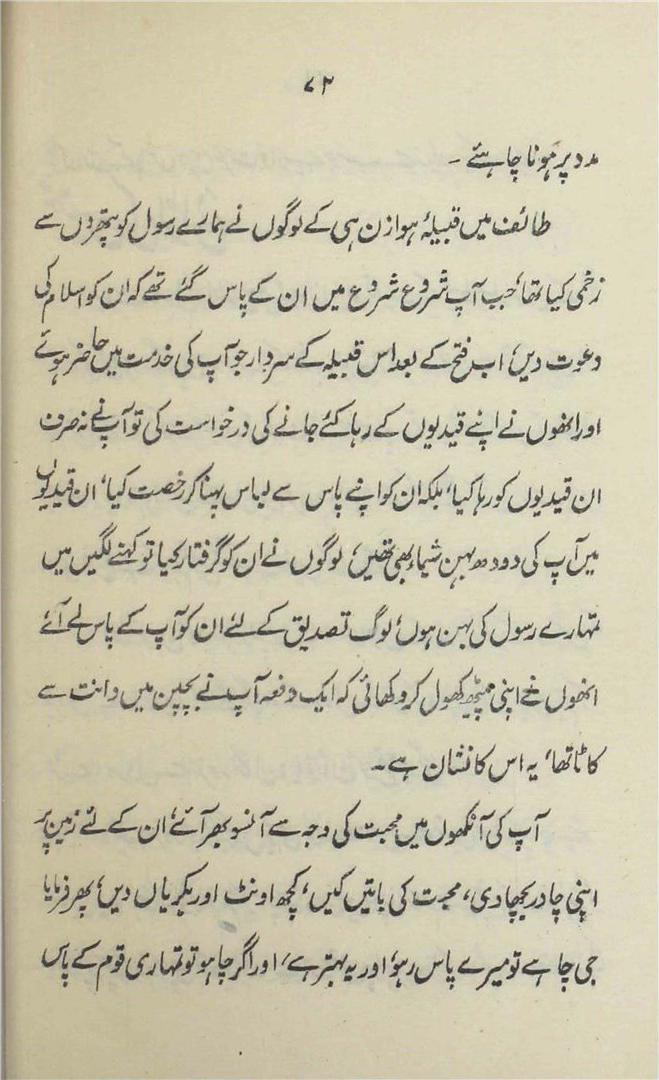 ۷۲
مدد پر ہونا چاہئے ۔
طائف میں قبیلۂ ہوازن ہی کے لوگوں نے ہمارے رسول کو پتھروں سے
زخمی کیا تھا، جب آپ شروع شروع میں ان کے پاس گئے تھے کہ ان کو اسلام کی
دعوت دیں، اب فتح کے بعد اس قبیلہ کے سردار جو آپ کی خدمت میں حاضر ہوئے
اور انھوں نے اپنے قیدیوں کے رہا کئے جانے کی درخواست کی تو آپ نے نہ صرف
ان قیدیوں کو رہا کیا، بلکہ ان کو اپنے پاس سے لباس پہنا کر رخصت کیا، ان قیدیوں
میں آپ کی دودھ بہن شیماء بھی تھیں، لوگوں نے ان کو گرفتار کیا تو کہنے لگیں میں
تمہارے رسول کی بہن ہوں، لوگ تصدیق کے لئے ان کو آپ کے پاس لے آئے
انھوں نے اپنی پیٹھ کھول کر دکھائی کہ ایک دفعہ آپ نے بچپن میں دانت سے
کاٹا تھا، یہ اس کا نشان ہے ۔
آپ کی آنکھوں میں محبت کی وجہ سے آنسو بھر آئے، ان کے لئے زمین پر
اپنی چادر بچھا دی، محبت کی باتیں کیں، کچھ اونٹ اور بکریاں دیں، پھر فرمایا
جی چاہے تو میرے پاس رہو، اور یہ بہتر ہے، اور اگر چاہو تو تمہاری قوم کے پاس